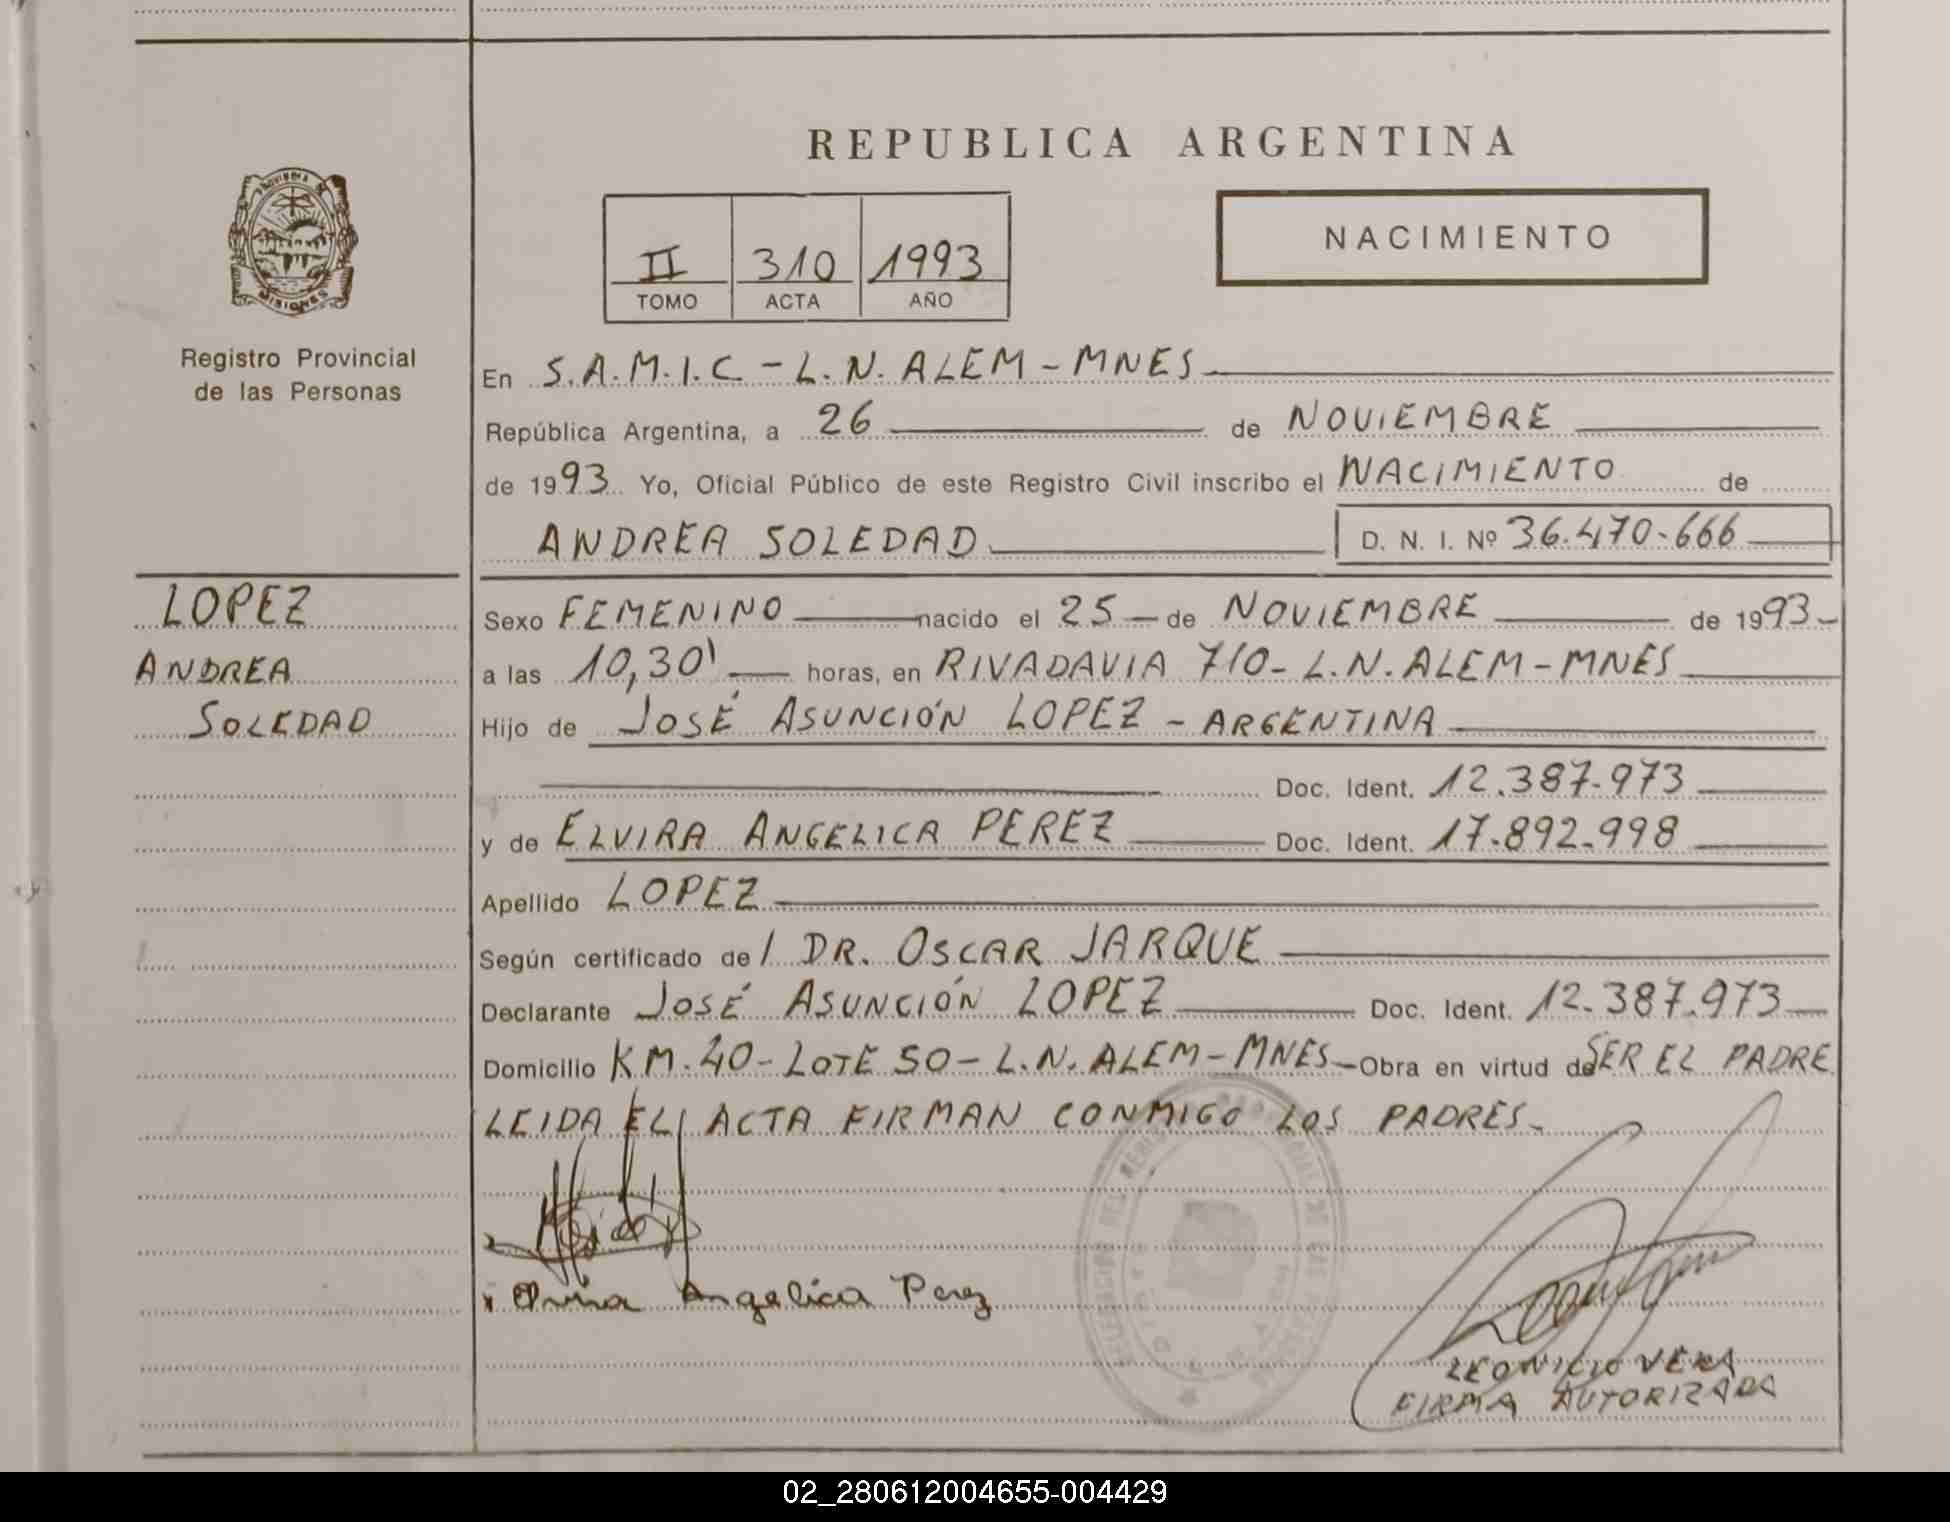 REPUBLICA ARGENTINA
PROVINCIA DE
MISIONES
Registro Provincial
de las Personas
NACIMIENTO
II 310 1993
TOMO ACTA AÑO
En S.A.M.I.C - L.N. ALEM - MNES
República Argentina, a 26 de NOVIEMBRE
de 1993 Yo, Oficial Público de este Registro Civil inscribo el NACIMIENTO de
ANDREA SOLEDAD D. N. I. Nº 36.470.666
LOPEZ
ANDREA
SOLEDAD
Sexo FEMENINO nacido el 25 de NOVIEMBRE de 1993
a las 10,30' horas, en RIVADAVIA 710 - L.N. ALEM - MNES
Hijo de JOSÉ ASUNCIÓN LOPEZ - ARGENTINA
Doc. Ident. 12.387.973
y de ELVIRA ANGELICA PEREZ Doc. Ident. 17.892.998
Apellido LOPEZ
Según certificado de / DR. OSCAR JARQUE
Declarante JOSÉ ASUNCIÓN LOPEZ Doc. Ident. 12.387.973
Domicilio KM.40 - LOTE 50 - L.N. ALEM - MNES - Obra en virtud de SER EL PADRE
LEIDA EL ACTA FIRMAN CONMIGO LOS PADRES.
Elvira Angelica Perez
LEONICIO VERA
FIRMA AUTORIZADA
02_280612004655-004429